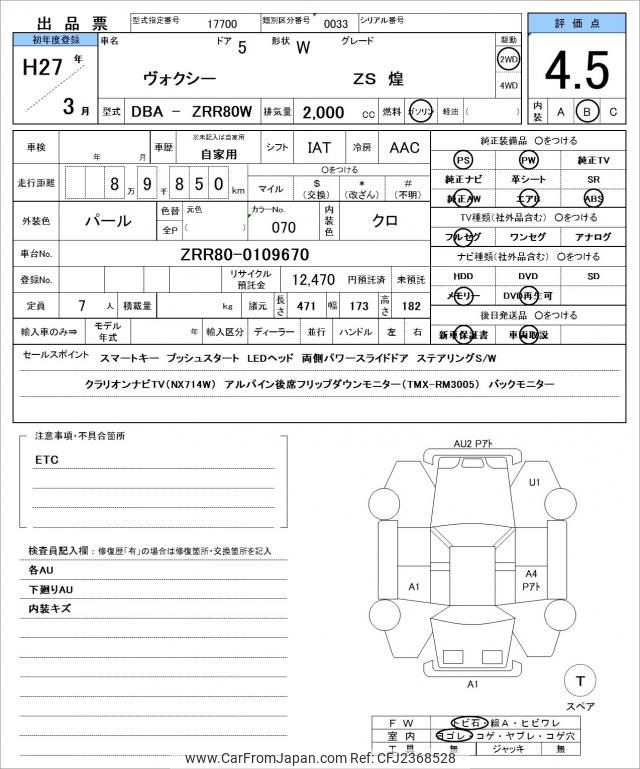 出品票 型式指定番号 17700 類別区分番号 0033 シリアル番号 評価点
初年度登録 車名 ドア 5 形状 W グレード 駆動
H27 年 ヴォクシー ZS 煌 2WD 4.5
4WD
3 月 型式 DBA - ZRR80W 排気量 2,000 CC 燃料 ガソリン 軽油 ( ) 内装 A B C
車検 年 月 車歴 ※未記入は自家用 自家用 シフト IAT 冷房 AAC 純正装備品 〇をつける
PS PW 純正TV
走行距離 8 万 9 千 8 5 0 km 〇をつける
マイル $ (交換) * (改ざん) # (不明) 純正ナビ 革シート SR
純正AW エアB ABS
外装色 パール 色替 元色 カラーNo. 内装色 クロ TV種類(社外品含む) 〇をつける
全P ( ) 070 フルセグ ワンセグ アナログ
車台No. ZRR80-0109670 ナビ種類(社外品含む) 〇をつける
登録No. リサイクル預託金 12,470 円預託済 未預託 HDD DVD SD
定員 7 人 積載量 kg 諸元 長さ 471 幅 173 高さ 182 メモリー DVD再生可
後日発送品 〇をつける
輸入車のみ⇒ モデル年式 年 輸入区分 ディーラー 並行 ハンドル 左 右 新車保証書 車両取説
セールスポイント スマートキー プッシュスタート LEDヘッド 両側パワースライドドア ステアリングS/W
クラリオンナビTV(NX714W) アルパイン後席フリップダウンモニター(TMX-RM3005) バックモニター
注意事項・不具合箇所
ETC
検査員記入欄：修復歴「有」の場合は修復箇所・交換箇所を記入
各AU
下廻りAU
内装キズ
AU2 Pアト
U1
A1
A4
Pアト
A1
T
スペア
FW トビ石・線A・ヒビワレ
室内 ヨゴレ・コゲ・ヤブレ・コゲ穴
工具 無 ジャッキ 無
www.CarFromJapan.com Ref: CFJ2368528